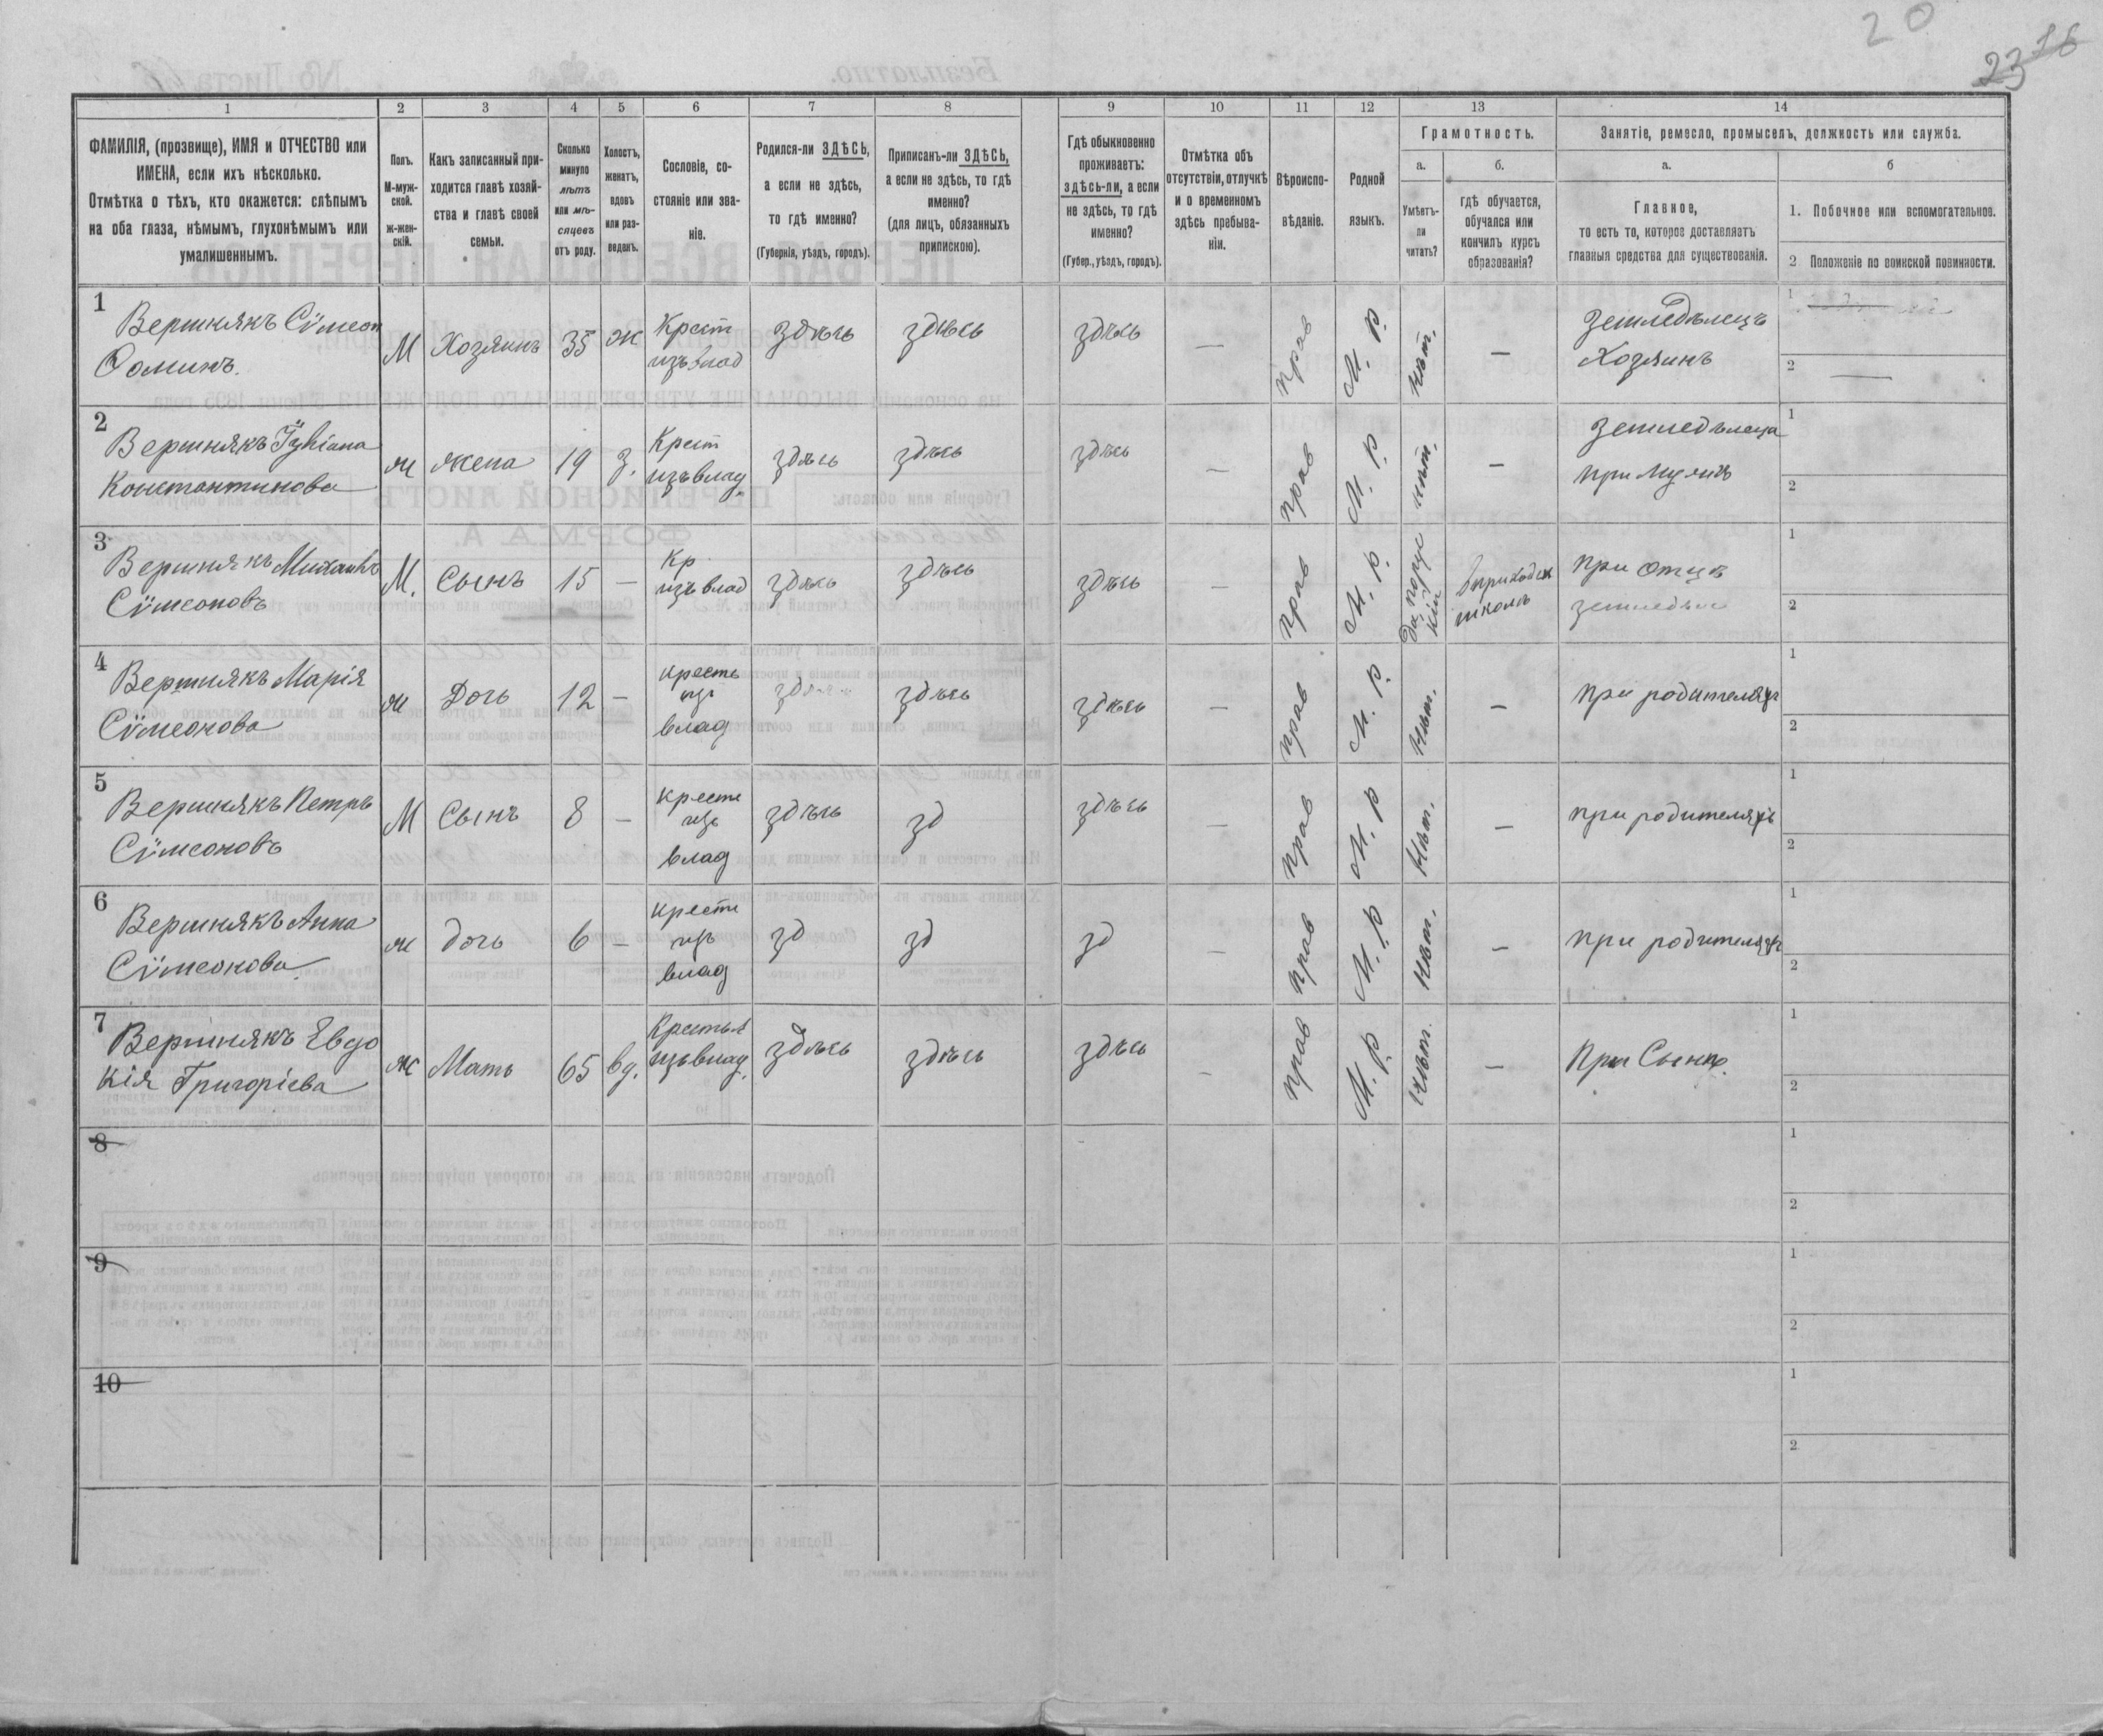 20
23 16
1 2 3 4 5 6 7 8 9 10 11 12 13 14
ФАМИЛІЯ, (прозвище), ИМЯ и ОТЧЕСТВО или
ИМЕНА, если ихъ нѣсколько.
Отмѣтка о тѣхъ, кто окажется: слѣпымъ
на оба глаза, нѣмымъ, глухонѣмымъ или
умалишеннымъ.
Полъ.
М-муж-
ской.
ж-жен-
скій.
Какъ записанный при-
ходится главѣ хозяй-
ства и главѣ своей
семьи.
Сколько
минуло
лѣтъ
или мѣ-
сяцевъ
отъ роду.
Холостъ,
женатъ,
вдовъ
или раз-
веденъ.
Сословіе, со-
стояніе или зва-
ніе.
Родился-ли ЗДѢСЬ,
а если не здѣсь,
то гдѣ именно?
(Губернія, уѣздъ, городъ).
Приписанъ-ли ЗДѢСЬ,
а если не здѣсь, то гдѣ
именно?
(для лицъ, обязанныхъ
припискою).
Гдѣ обыкновенно
проживаетъ:
здѣсь-ли, а если
не здѣсь, то гдѣ
именно?
(Губер., уѣздъ, городъ).
Отмѣтка объ
отсутствіи, отлучкѣ
и о временномъ
здѣсь пребыва-
ніи.
Вѣроиспо-
вѣданіе.
Родной
языкъ.
Грамотность.
а.
Умѣетъ-
ли
читать?
б.
гдѣ обучается,
обучался или
кончилъ курсъ
образованія?
Занятіе, ремесло, промыселъ, должность или служба.
а.
Главное,
то есть то, которое доставляетъ
главныя средства для существованія.
б
1. Побочное или вспомогательное.
2 Положеніе по воинской повинности.
1
Вершнякъ Сѵмеон
Ѳоминъ.
М Хозяинъ 35 ж
Крест
изъ влад
здѣсь здѣсь здѣсь — прав М. р. нѣт. —
Земледѣлецъ
Хозяинъ
1
2 —
2
Вершнякъ
Константинова
ж жена 19 з.
Крест
изъ влад.
здѣсь здѣсь здѣсь — прав М. р. нѣт. —
Земледѣлица
при мужѣ
1
2
3
Вершнякъ Михаилъ
Сѵмеоновъ
М. Сынъ 15 —
Кр
изъ влад
здѣсь здѣсь здѣсь — прав М. р.
да, по рус
кіи
в приходск
школѣ
при отцѣ
земледѣл
1
2
4
Вершнякъ Марія
Сѵмеонова
ж Дочь 12 —
кресть
изъ
влад
здѣсь здѣсь здѣсь — прав М. р. нѣт. —
при родителяхъ
1
2
5
Вершнякъ Петръ
Сѵмеоновъ
М Сынъ 8 —
крест
изъ
влад
здѣсь зд здѣсь — прав М. р нѣт. —
при родителяхъ
1
2
6
Вершнякъ Анна
Сѵмеонова
ж дочь 6 —
крест
изъ
влад
зд зд зд — прав М. р нѣт. —
при родителяхъ
1
2
7
Вершнякъ Евдо
кія Григоріева
ж Мать 65 вд.
Крестья
изъ влад.
здѣсь здѣсь здѣсь — прав М. р. нѣт. —
При Сынѣ.
1
2
8
1
2
9
1
2
10
1
2